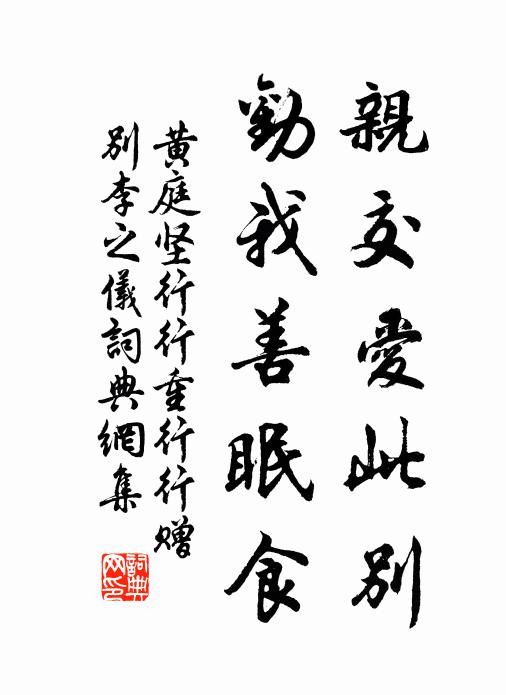 親交愛此別
勸我善眠食
黄庭坚行行重行行赠
别李之儀詞典網集
詞典
网印